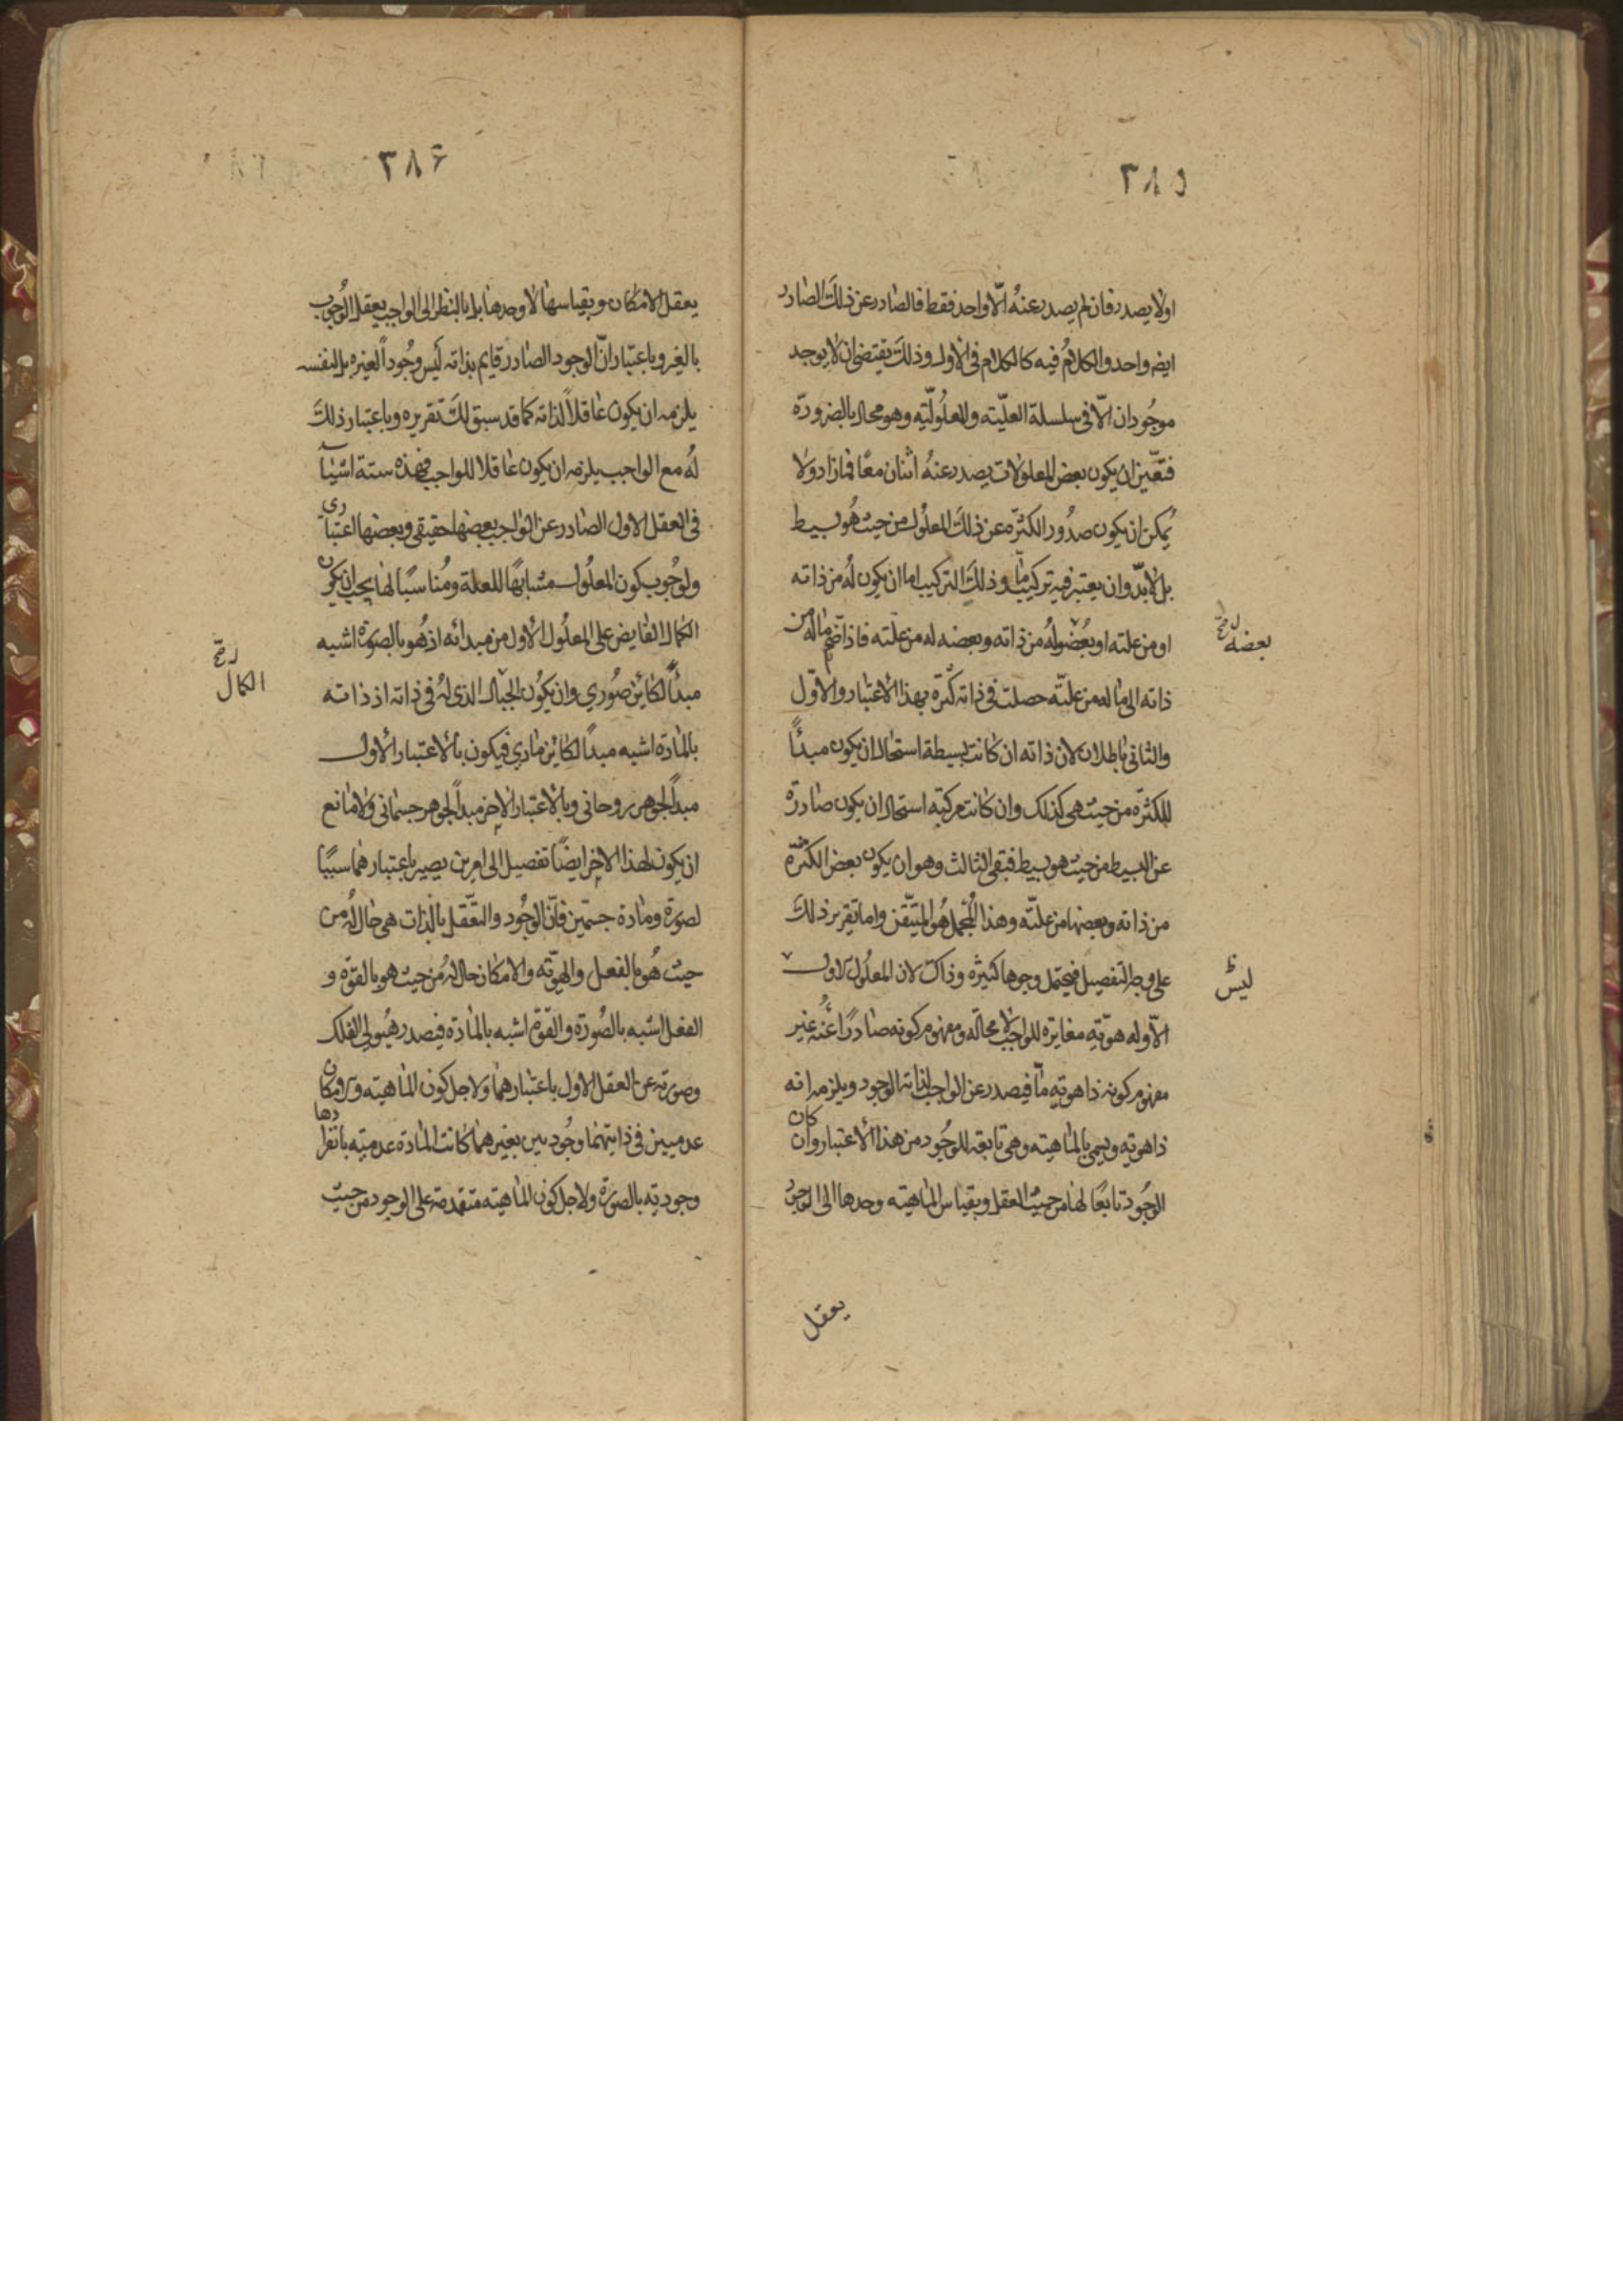 ٣٨٥
اولا يصدر فان لم يصدر عنه الّا واحد فقط فالصادر عن ذلك الصادر
ايضا واحد والكلام فيه كالكلام فى الاول وذلك يقتضى ان لا يوجد
موجودان الّا فى سلسلة العلّيته والمعلولّيته وهو محال بالضرورة
فتعّين ان يكون بعض المعلولات يصدر عنه اثنان معًا فمازاد ولا
يمكن ان يكون صدور الكثرة عن ذلك المعلول من حيث هو بسيط
بل لابدّ وان يعتبر فيه تركيب ما وذلك التركيب اما ان يكون له من ذاته
او من علته او بعضه له من ذاته وبعضه له من علّته فاذا ضم ماله من
بعضه
ذاته الى ما له من علّته حصلت فى ذاته كثرة بهذا الاعتبار والاوّل
والثانى باطلان لان ذاته ان كانت بسيطة استحال ان يكون مبدأً
للكثرة من حيث هى كذلك وان كانت مركبة استحال ان يكون صادرة
عن البسيط من حيث هو بسيط فبقى الثالث وهو ان يكون بعض الكثرة
من ذاته وبعضها من علّته وهذا المجمل هو المتيّقن واما تقرير ذلك
على وجه التفصيل فيحتمل وجوها كثيرة وذاك لان المعلول الاول
ليس
الّا وله هوّيّة مغايرة للواجب لا محالة ومفهوم كونه صادرًا عنه غير
مفهوم كونه ذا هويّة مّا فيصدر عن الواجب لذاته الوجود ويلزمه انه
ذا هويّة ويسمى بالماهيته وهى تابعة للوجود من هذا الاعتبار وان كان
الوجود تابعًا لها من حيث العقل وبقياس الماهيته وحدها الى الوجود
يعقل
٣٨۶
يعقل الامكان وبقياسها لا وحدها بل بالنظر الى الواجب يعقل الوجوب
بالغير وباعتبار انّ الوجود الصادر قايم بذاته ليس وجوداً لغيره بل لنفسه
يلزمه ان يكون عاقلاً لذاته كما قد سبق لك تقريره وباعتبار ذلك
له مع الواجب يلزمه ان يكون عاقلا للواجب فهذه ستة اشيآ
فى العقل الاول الصادر عن الواجب بعضها حقيقى وبعضها اعتبارى
ولوجوب كون المعلول مشابهًا للعلة ومناسبًا لها يجب ان يكون
الكمال الفايض على المعلول الاول من مبدائه اذ هو بالصورة اشبه
مبدأً لكائن صورى وان يكون الحال الذى له فى ذاته اذ ذاته
الكمال
بالمادة اشبه مبدأً لكائن مادى فيكون بالاعتبار الاول
مبدأً لجوهر روحانى وبالاعتبار الاخر مبدأً لجوهر جسمانى ولا مانع
ان يكون لهذا الاخر ايضًا تفصيل الى امرين يصير باعتبارهما سببًا
لصورة ومادة جسمّين فانّ الوجود والتعّقل بالذات هى حال له من
حيث هو بالفعل والهويّة والامكان حال له من حيث هو بالقوة و
الفعل اشبه بالصورة والقوة اشبه بالمادة فيصدر هيولى الفلك
وصورته عن العقل الاول باعتبارهما ولاجل كون الماهيته والامكان
عدميين فى ذاتيهما وجوديين بغيرهما كانت المادة عدميّة بانفرادها
وجوديّة بالصورة ولاجل كون الماهيته متقدمة على الوجود من حيث